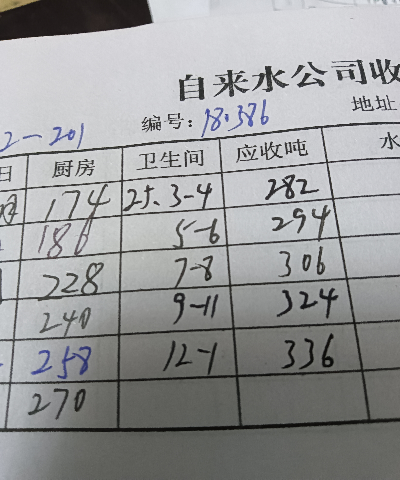 自来水公司收
2-201 编号: 18.386 地址
日 厨房 卫生间 应收吨 水
174 25.3-4 282
186 5-6 294
228 7-8 306
240 9-11 324
258 12-1 336
270